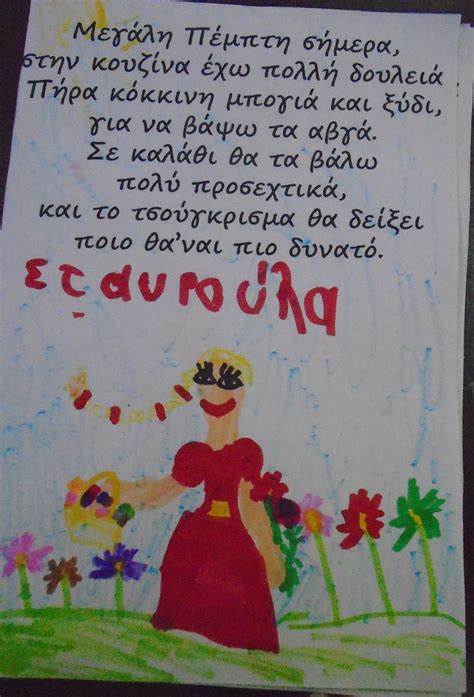 Μεγάλη Πέμπτη σήμερα,
στην κουζίνα έχω πολλή δουλειά
Πήρα κόκκινη μπογιά και ξύδι,
για να βάψω τα αβγά.
Σε καλάθι θα τα βάλω
πολύ προσεχτικά,
και το τσούγκρισμα θα δείξει
ποιο θα'ναι πιο δυνατό.
εςαυρούλα